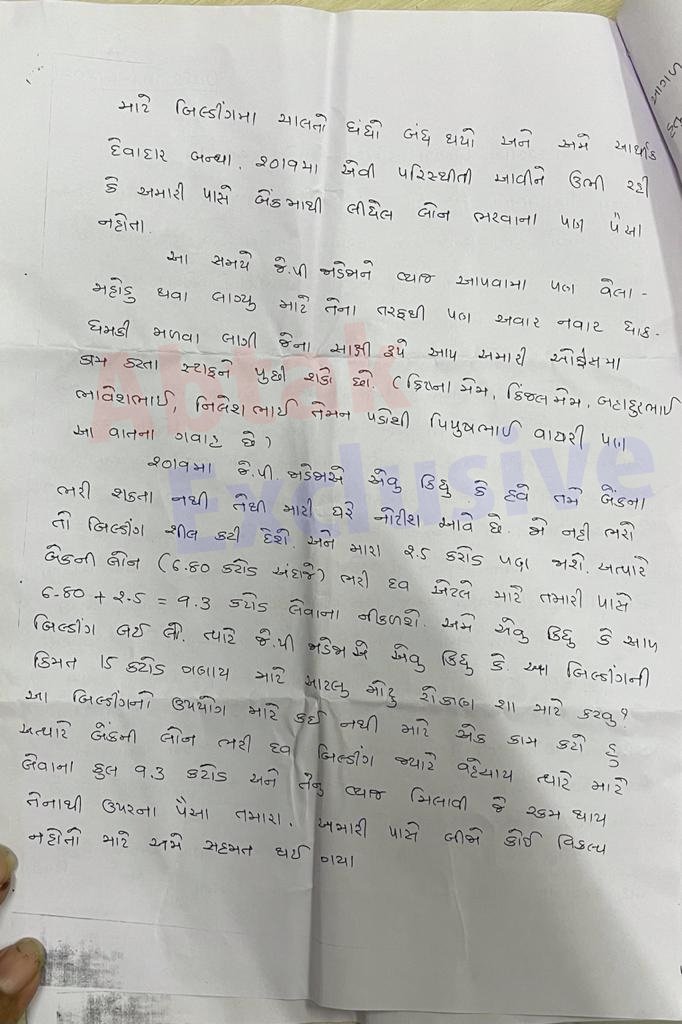 માટે બિલ્ડીંગમા ચાલતો ધંધો બંધ થયો અને અમે આર્થીક
દેવાદાર બન્યા. ૨૦૧૭મા એવી પરિસ્થીતી આવીને ઉભી રહી
કે અમારી પાસે બેંકમાથી લીધેલ લોન ભરવાના પણ પૈસા
નહોતા.
આ સમયે જે.પી જાડેજાને વ્યાજ આપવામા પણ વેલા -
મહોડુ થવા લાગ્યુ માટે તેના તરફથી પણ અવાર નવાર ધાક-
ધમકી મળવા લાગી જેના સાક્ષી રૂપે આપ અમારી ઓફીસમા
કામ કરતા સ્ટાફને પુછી શકો છો. (ક્રિષ્ના મેમ, કિંજલ મેમ, બહાદુરભાઈ
ભાવેશભાઈ, નિલેશ ભાઈ તેમજ પડોશી પિયુષભાઈ વાઘરી પણ
આ વાતના ગવાહ છે)
૨૦૧૭મા જે.પી. જાડેજાએ એવુ કિધુ કે હવે તમે બેંકના
ભરી શકતા નથી તેથી મારી ઘરે નોટીશ આવે છે. જો નહી ભરો
તો બિલ્ડીંગ શીલ કરી દેશે. અને મારા ૨.5 કરોડ પણ જાશે. અત્યારે
બેંકની લોન (6.80 કરોડ અંદાજે) ભરી દવ એટલે મારે તમારી પાસે
6.80 + ૨.5 = 9.3 કરોડ લેવાના નીકળશે. અમે એવુ કિધુ કે આપ
બિલ્ડીંગ લઈ લો. ત્યારે જે.પી જાડેજા એ એવુ કિધુ કે. આ બિલ્ડીંગની
કિંમત 15 કરોડ ગણાય માટે આટલુ મોટુ રોકાણ શા માટે કરવુ?
આ બિલ્ડીંગનો ઉપયોગ મારે કઈ નથી માટે એક કામ કરો હુ
અત્યારે બેંકની લોન ભરી દવ બિલ્ડીંગ જ્યારે વહેચાય ત્યારે મારે
લેવાના કુલ 9.3 કરોડ અને તેનુ વ્યાજ મિલાવી જે રકમ થાય
તેનાથી ઉપરના પૈસા તમારા. અમારી પાસે બીજો કોઈ વિકલ્પ
નહોતો માટે અમે સહમત થઈ ગયા
Abtak
Exclusive